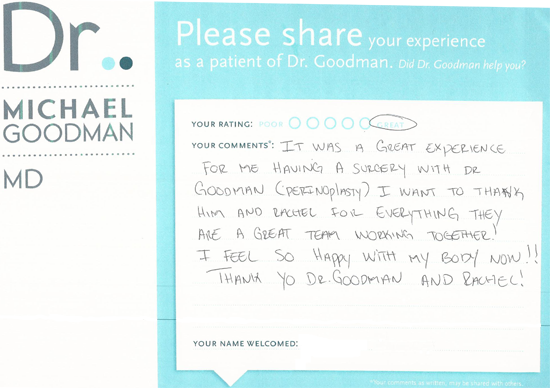 Dr..
MICHAEL
GOODMAN
MD
Please share your experience
as a patient of Dr. Goodman. Did Dr. Goodman help you?
YOUR RATING: POOR GREAT
YOUR COMMENTS*: IT WAS A GREAT EXPERIENCE
FOR ME HAVING A SURGERY WITH DR
GOODMAN (PERINOPLASTY) I WANT TO THANK
HIM AND RACHEL FOR EVERYTHING THEY
ARE A GREAT TEAM WORKING TOGETHER!
I FEEL SO HAPPY WITH MY BODY NOW!!
THANK YO DR. GOODMAN AND RACHEL!
YOUR NAME WELCOMED:
*Your comments as written, may be shared with others.